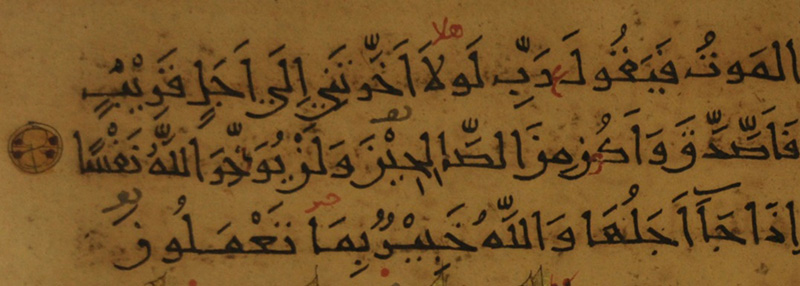 الموتُ فَيَقُولَ رَبِّ لَولَا اَخَّرتَنِي اِلَى اَجَلٍ قَرِيْبٍ
فَاَصَّدَّقَ وَاَكُن مِنَ الصَّالِحِيْنَ وَلَنْ يُوَخِّرَ اللّٰهُ نَفْسًا
اِذَا جَآءَ اَجَلُهَا وَاللّٰهُ خَبِيْرٌ بِمَا تَعْمَلُونَ